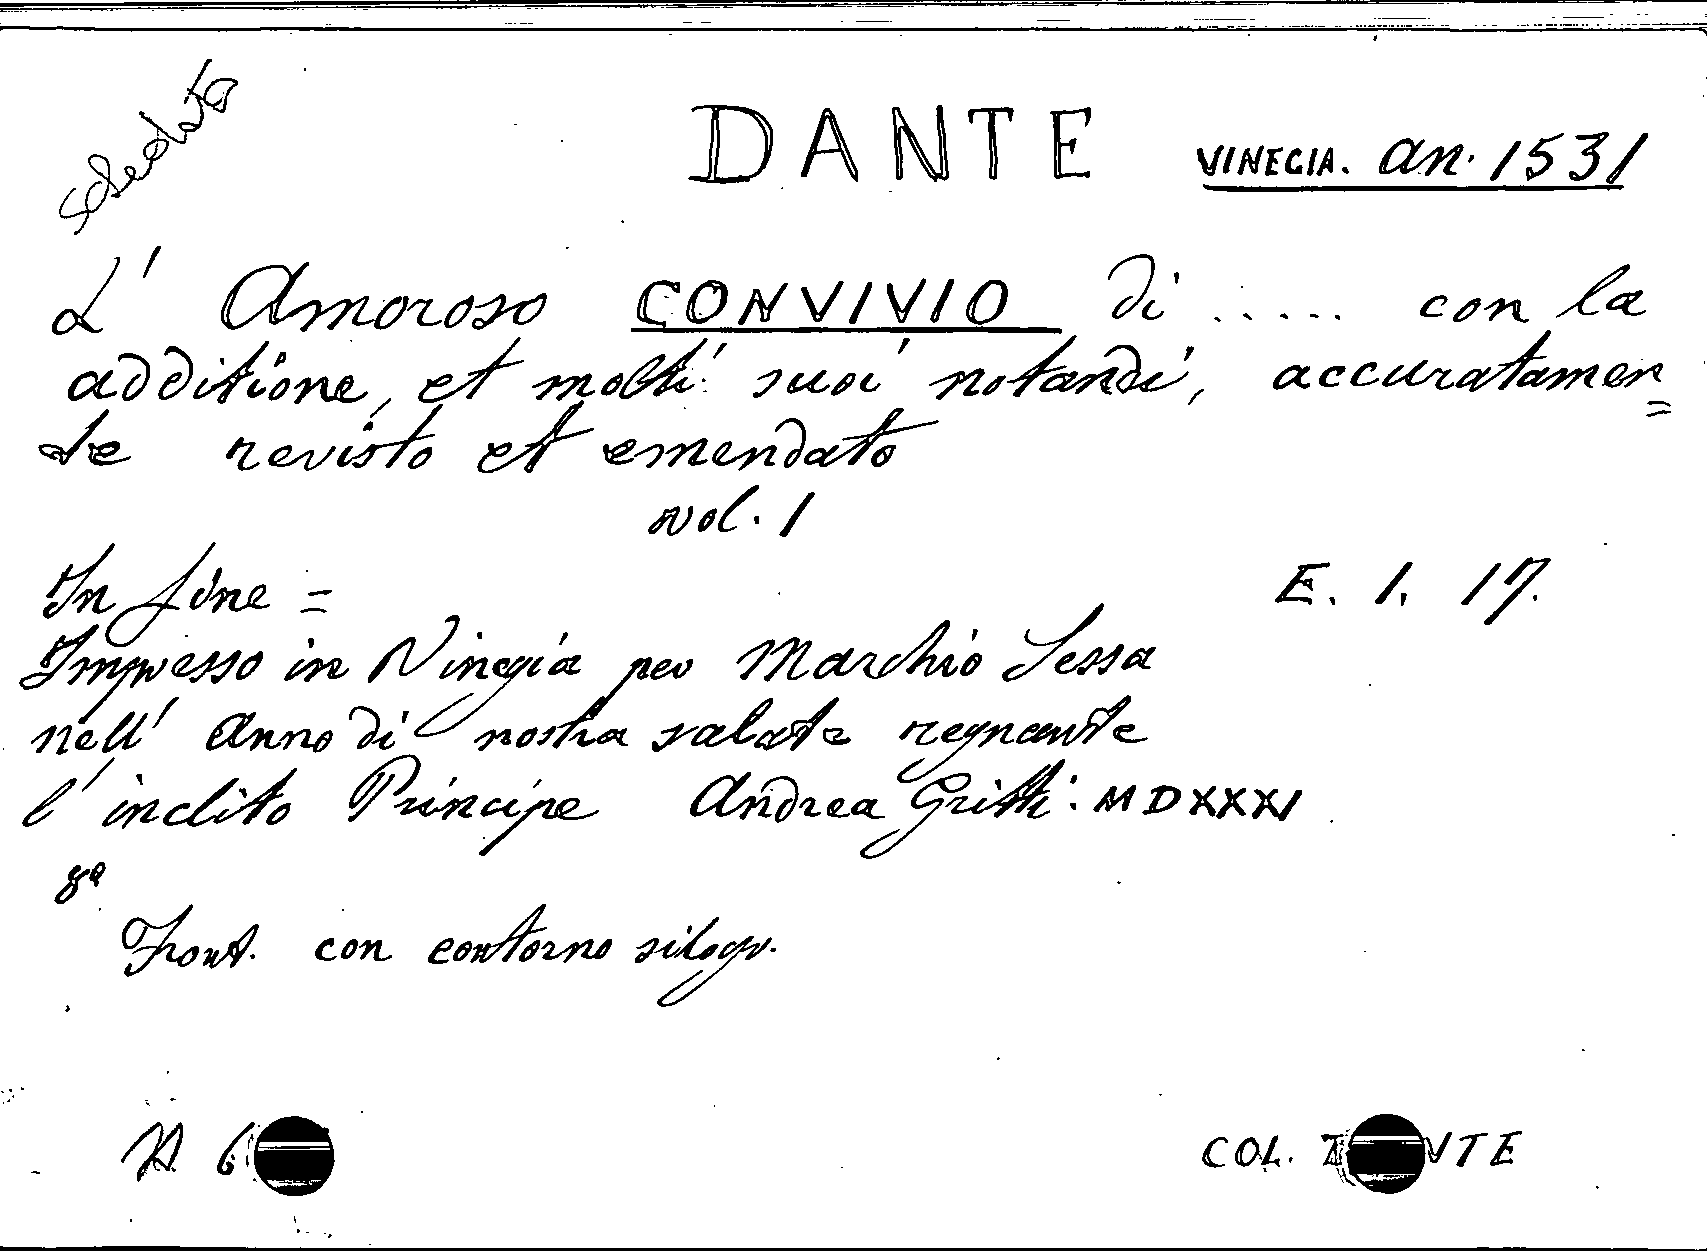 schedato
DANTE VINEGIA. an. 1531
L' Amoroso CONVIVIO di ..... con la
additione, et molti suoi notandi, accuratamen=
te revisto et emendato
vol. 1
In fine = E. 1. 17.
Impresso in Vinegia per Marchio Sessa
nell' anno di nostra salute regnante
l'inclito Principe Andrea Gritti: MDXXXI
8º
Front. con contorno silogr.
N 6
COL. NTE